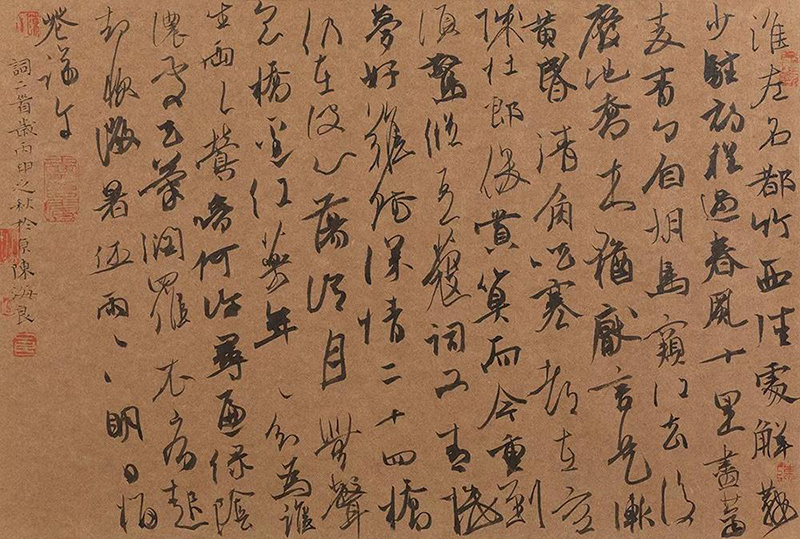 淮左名都竹西佳處解鞍
少駐初程過春風十里盡薺
麦青々自胡馬窺江去後
廢池喬木猶厭言兵漸
黃昏清角吹寒都在空
城杜郎俊賞算而今重到
須驚縱豆蔻詞工青樓
夢好難賦深情二十四橋
仍在波心蕩冷月無聲
念橋邊紅藥年々知為誰
生兩々鶯啼何許尋遍綠陰
濃處天氣潤羅衣病起
却忺微暑休雨々々明日榴
花端午
詞二首歲丙申之秋於京陳海良